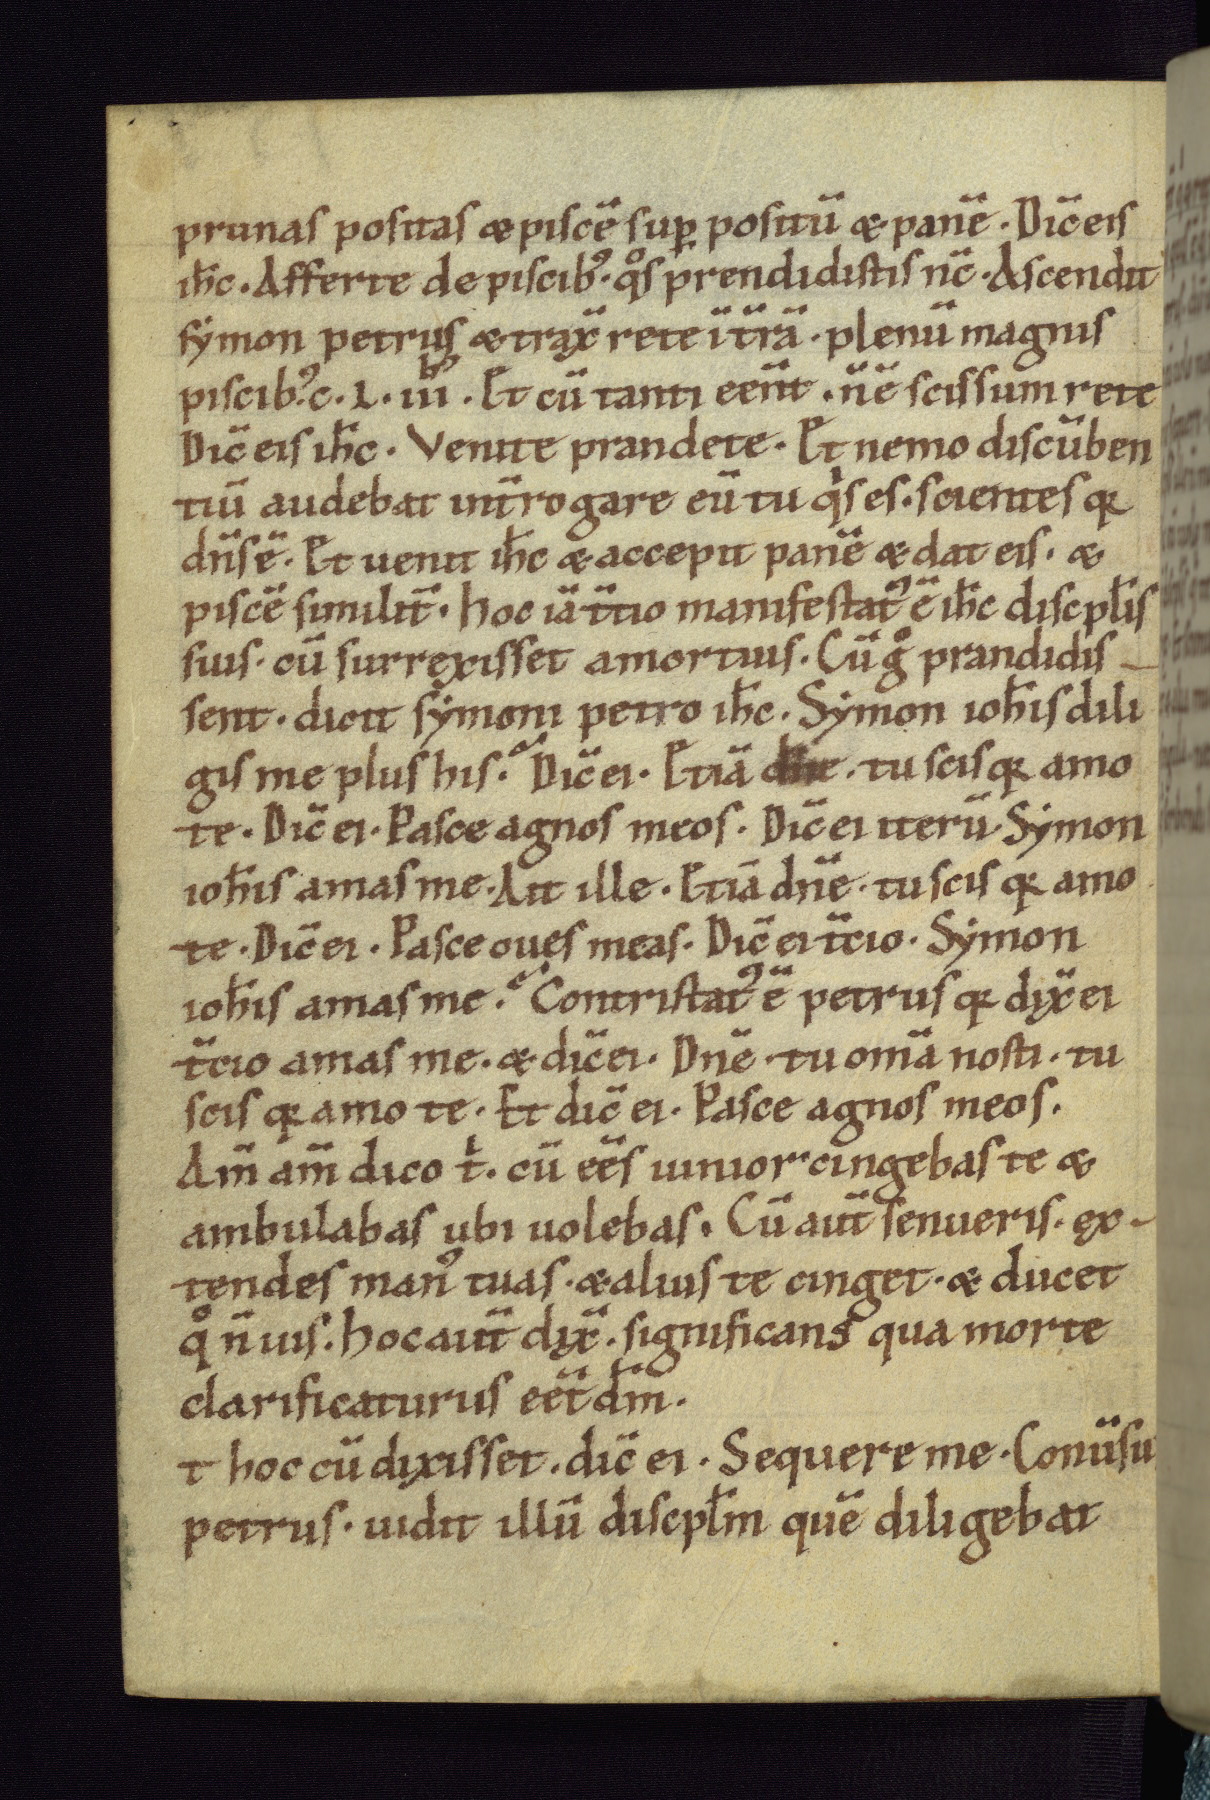 prunas positas & piscē sup̱ positū & panē. Dic̄ eis
ih̅c. Afferte de piscib⁹. qͦs prendidistis nc̄. Ascendit
symon petrus & trax̄ rete ī t̄rā. plenū magnis
piscib⁹. c. L. iiiᵇ⁹. Et cū tanti een̄t. n̄ ē scissum rete
Dic̄ eis ih̅c. Venite prandete. Et nemo discūben
tiū audebat int̄rogare eū tu qⁱs es. scientes qꝛ
dn̄s ē. Et uenit ih̅c & accepit panē & dat eis. &
piscē similit̄. hoc iā t̄tio manifestat⁹ ē ih̅c discpl̅is
suis. cū surrexisset amortuis. Cū gͦ prandidis-
sent. dicit symoni petro ih̅c. Symon ioh̅is dili
gis me plus his. Dic̄ ei. Etiā dn̄e. tu scis qꝛ amo
te. Dic̄ ei. Pasce agnos meos. Dic̄ ei iterū Symon
ioh̅is amas me. Ait ille. Etiā dn̄e. tu scis qꝛ amo
te. Dic̄ ei. Pasce oues meas. Dic̄ ei t̄cio. Symon
ioh̅is amas me. Contristat⁹ ē petrus qꝛ dix̄ ei
t̄cio amas me. & dic̄ ei. Dn̄e. tu om̄a nosti. tu
scis qꝛ amo te. Et dic̄ ei. Pasce agnos meos.
Am̄ am̄ dico tⁱ. cū eēs iunior cingebas te &
ambulabas ubi uolebas. Cū aut̄ senueris. ex-
tendes man⁹ tuas. & alius te cinget. & ducet
qͦ n̄ uis. hoc aut̄ dix̄. significans qua morte
clarificaturus eēt dm̅.
t hoc cū dixisset. dic̄ ei. Sequere me. Conūsu
petrus. uidit illū discpl̅m quē diligebat